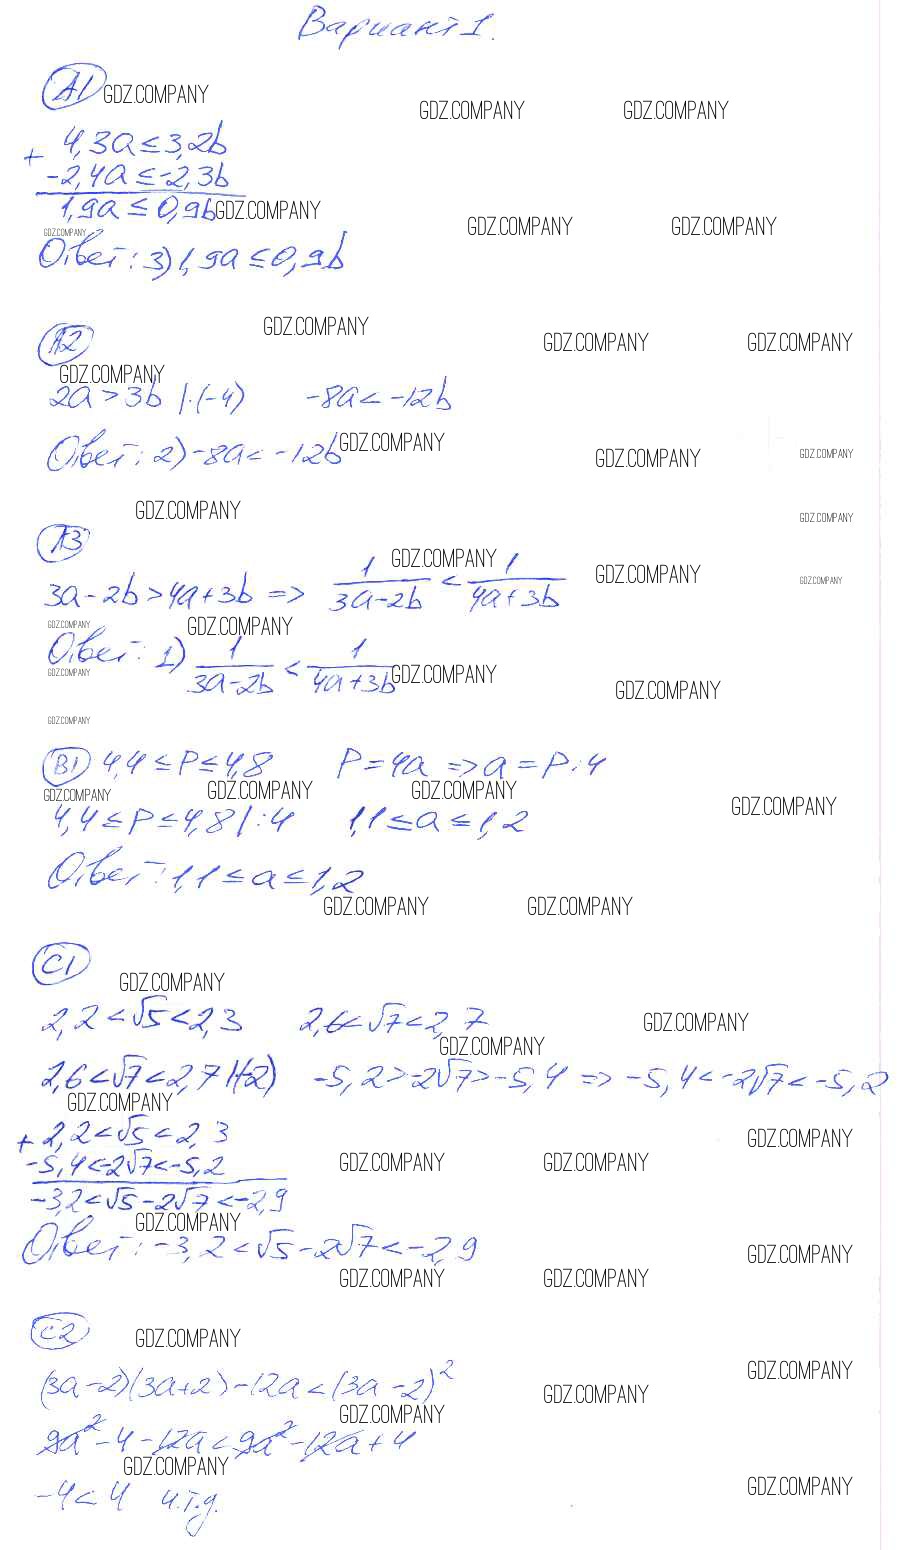 Вариант 1.
А1 GDZ.COMPANY
GDZ.COMPANY GDZ.COMPANY
+ 4,3a ≤ 3,2b
-2,4a ≤ -2,3b
1,9a ≤ 0,9b GDZ.COMPANY
GDZ.COMPANY GDZ.COMPANY
GDZ.COMPANY
Ответ: 3) 1,9a ≤ 0,9b
GDZ.COMPANY
А2
GDZ.COMPANY GDZ.COMPANY
GDZ.COMPANY
2a > 3b |·(-4) -8a < -12b
Ответ: 2) -8a < -12b GDZ.COMPANY
GDZ.COMPANY GDZ.COMPANY
GDZ.COMPANY GDZ.COMPANY
А3
GDZ.COMPANY
GDZ.COMPANY GDZ.COMPANY
3a - 2b > 4a + 3b => 1/(3a-2b) < 1/(4a+3b)
GDZ.COMPANY GDZ.COMPANY
Ответ: 1) 1/(3a-2b) < 1/(4a+3b)
GDZ.COMPANY GDZ.COMPANY
GDZ.COMPANY
GDZ.COMPANY
В1 4,4 ≤ P ≤ 4,8 P = 4a => a = P:4
GDZ.COMPANY GDZ.COMPANY GDZ.COMPANY
GDZ.COMPANY
4,4 ≤ P ≤ 4,8 |:4 1,1 ≤ a ≤ 1,2
Ответ: 1,1 ≤ a ≤ 1,2
GDZ.COMPANY GDZ.COMPANY
С1
GDZ.COMPANY
2,2 < √5 < 2,3 2,6 < √7 < 2,7
GDZ.COMPANY
GDZ.COMPANY
2,6 < √7 < 2,7 |(-2) -5,2 > -2√7 > -5,4 => -5,4 < -2√7 < -5,2
GDZ.COMPANY
+ 2,2 < √5 < 2,3
GDZ.COMPANY
-5,4 < -2√7 < -5,2
GDZ.COMPANY GDZ.COMPANY
-3,2 < √5 - 2√7 < -2,9
GDZ.COMPANY
Ответ: -3,2 < √5 - 2√7 < -2,9
GDZ.COMPANY
GDZ.COMPANY GDZ.COMPANY
С2
GDZ.COMPANY
GDZ.COMPANY
(3a-2)(3a+2) - 12a < (3a-2)²
GDZ.COMPANY
GDZ.COMPANY
9a² - 4 - 12a < 9a² - 12a + 4
GDZ.COMPANY
GDZ.COMPANY
-4 < 4 ч.т.д.